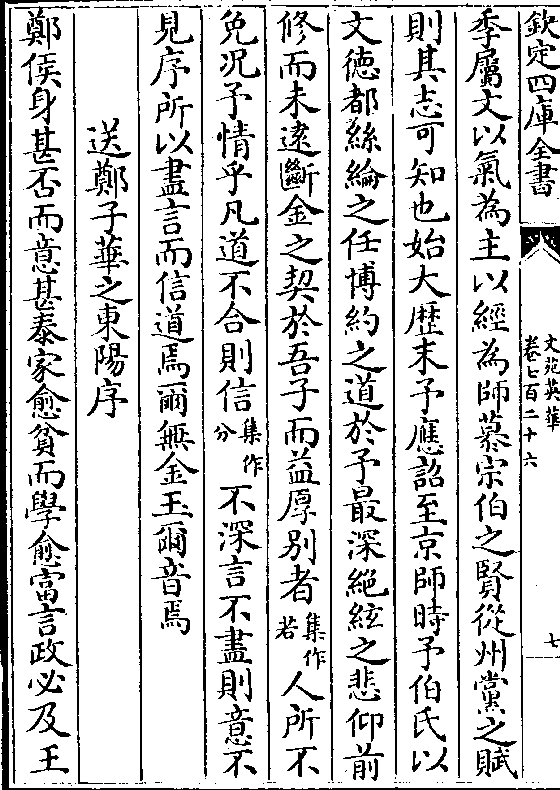 欽定四庫全書
文苑英華
卷七百二十六
七
季屬文以氣為主以經為師慕宗伯之賢從州黨之賦
則其志可知也始大歴末予應詔至京師時予伯氏以
文德都絲綸之任博約之道於予最深絕絃之悲仰前
修而未逮斷金之契於吾子而益厚別者集作若人所不
免況予情乎凡道不合則信集作分不深言不盡則意不
見序所以盡言而信道焉爾無金玉爾音焉
送鄭子華之東陽序
鄭侯身甚否而意甚泰家愈貧而學愈富言政必及王